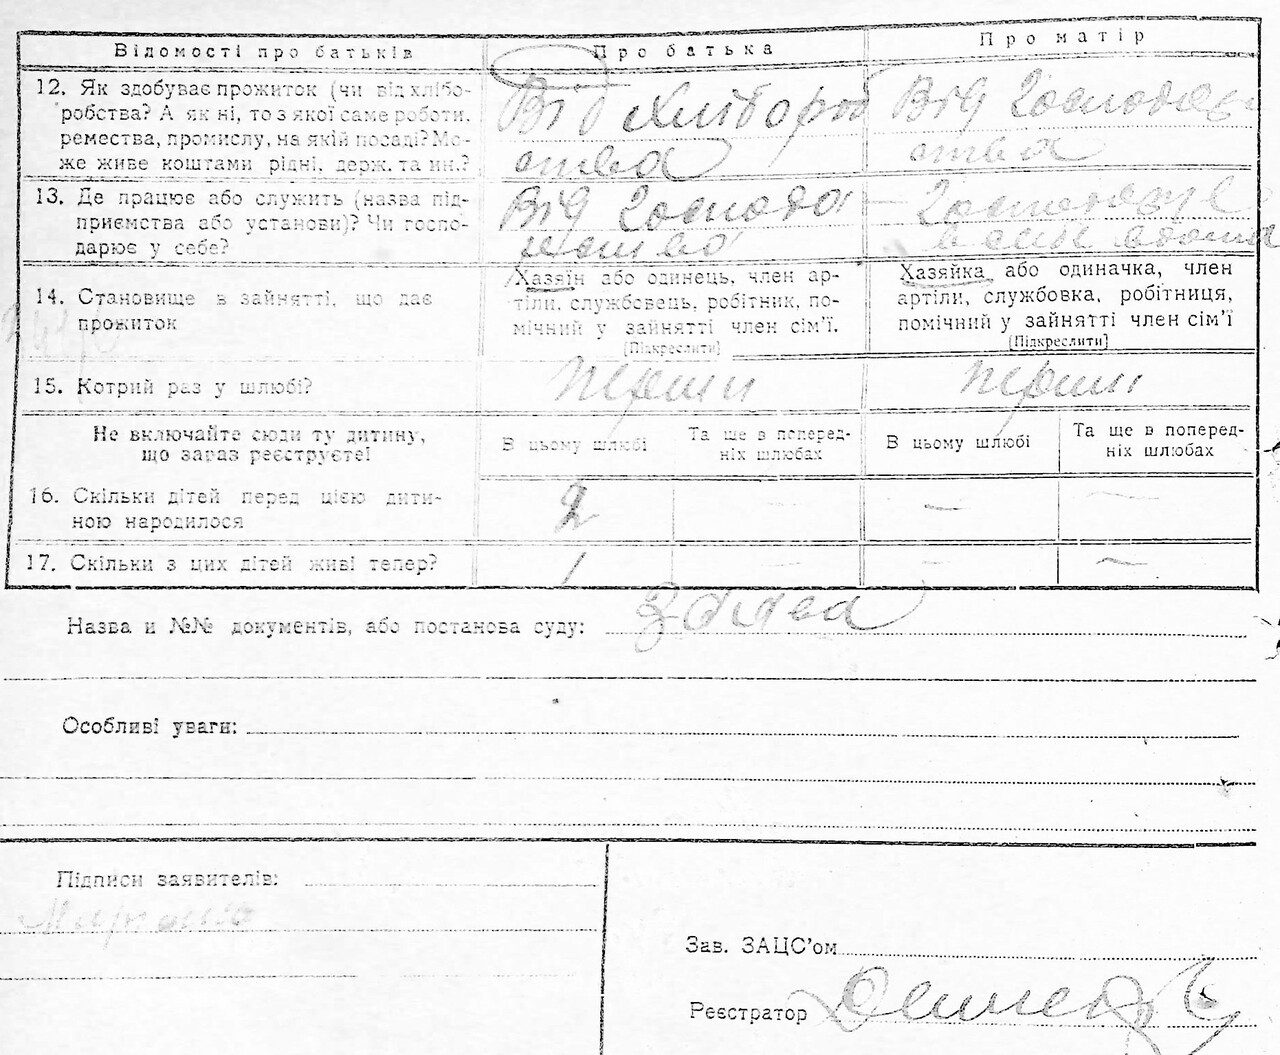 Відомості про батьків
Про батька
Про матір
12. Як здобуває прожиток (чи від хлібо-
робства? А як ні, то з якої саме роботи.
ремества, промислу, на якій посаді? Мо-
же живе коштами рідні, держ. та ин.?
Від хлібороб
ства
Від господар
ства
13. Де працює або служить (назва під-
приємства або установи)? Чи госпо-
дарює у себе?
Від господа
рства
14. Становище в зайнятті, що дає
прожиток
Хазяїн або одинець, член ар-
тіли, службовець, робітник, по-
мічний у зайнятті член сім'ї.
(Підкреслити)
Хазяйка або одиначка, член
артіли, службовка, робітниця,
помічний у зайнятті член сім'ї
(Підкреслити)
15. Котрий раз у шлюбі?
перши
перши
Не включайте сюди ту дитину,
що зараз реєструєте!
В цьому шлюбі
Та ще в поперед-
ніх шлюбах
В цьому шлюбі
Та ще в поперед-
ніх шлюбах
16. Скільки дітей перед цією дити-
ною народилося
2 — — —
17. Скільки з цих дітей живі тепер?
1 — —
Назва и №№ документів, або постанова суду: заява
Особливі уваги:
Підписи заявителів:
Зав. ЗАЦС'ом
Реєстратор